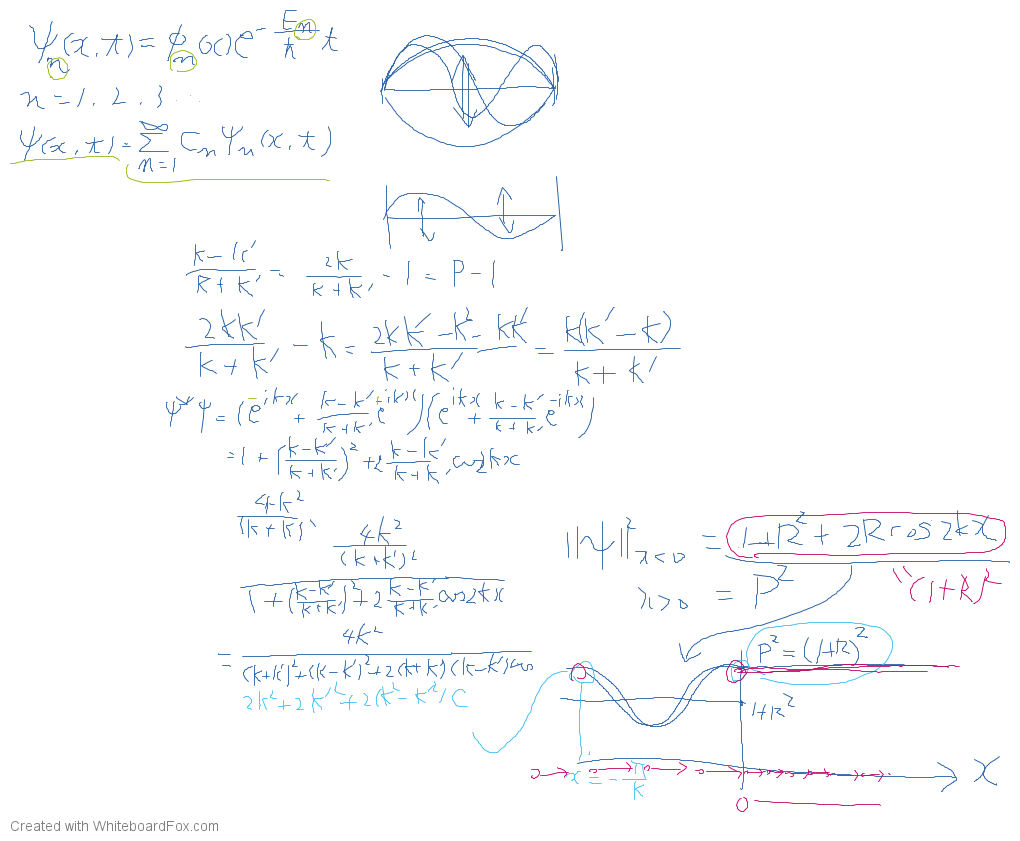 ψₙ(x,t) = φₙ(x) e^{-\frac{Eₙ}{ħ} t}
n = 1, 2, 3 ...
ψ(x,t) = \sum_{n=1}^{∞} Cₙ ψₙ(x,t)
\frac{k-k'}{k+k'} = \frac{2k}{k+k'} - 1 = P - 1
\frac{2kk'}{k+k'} - k = \frac{2kk' - k² - kk'}{k+k'} = \frac{k(k'-k)}{k+k'}
ψ*ψ = (e^{-ikx} + \frac{k-k'}{k+k'} e^{+ikx})(e^{ikx} + \frac{k-k'}{k+k'} e^{-ikx})
= 1 + (\frac{k-k'}{k+k'})² + 2 \frac{k-k'}{k+k'} cos2kx
\frac{4k²}{(k+k')
\frac{\frac{4k²}{(k+k')²}}{1 + (\frac{k-k'}{k+k'})² + 2 \frac{k-k'}{k+k'} cos2kx}
= \frac{4k²}{(k+k')² + (k-k')² + 2(k+k')(k-k') cos}
2k² + 2k'² + 2(k² - k'²) C
||ψ||²_{x<0} = 1+R² + 2R cos 2kx
x>0 = P²
"(1+R)²
P² = (1+R)²
1+R²
x = -\frac{π}{k}
0
x
Created with WhiteboardFox.com